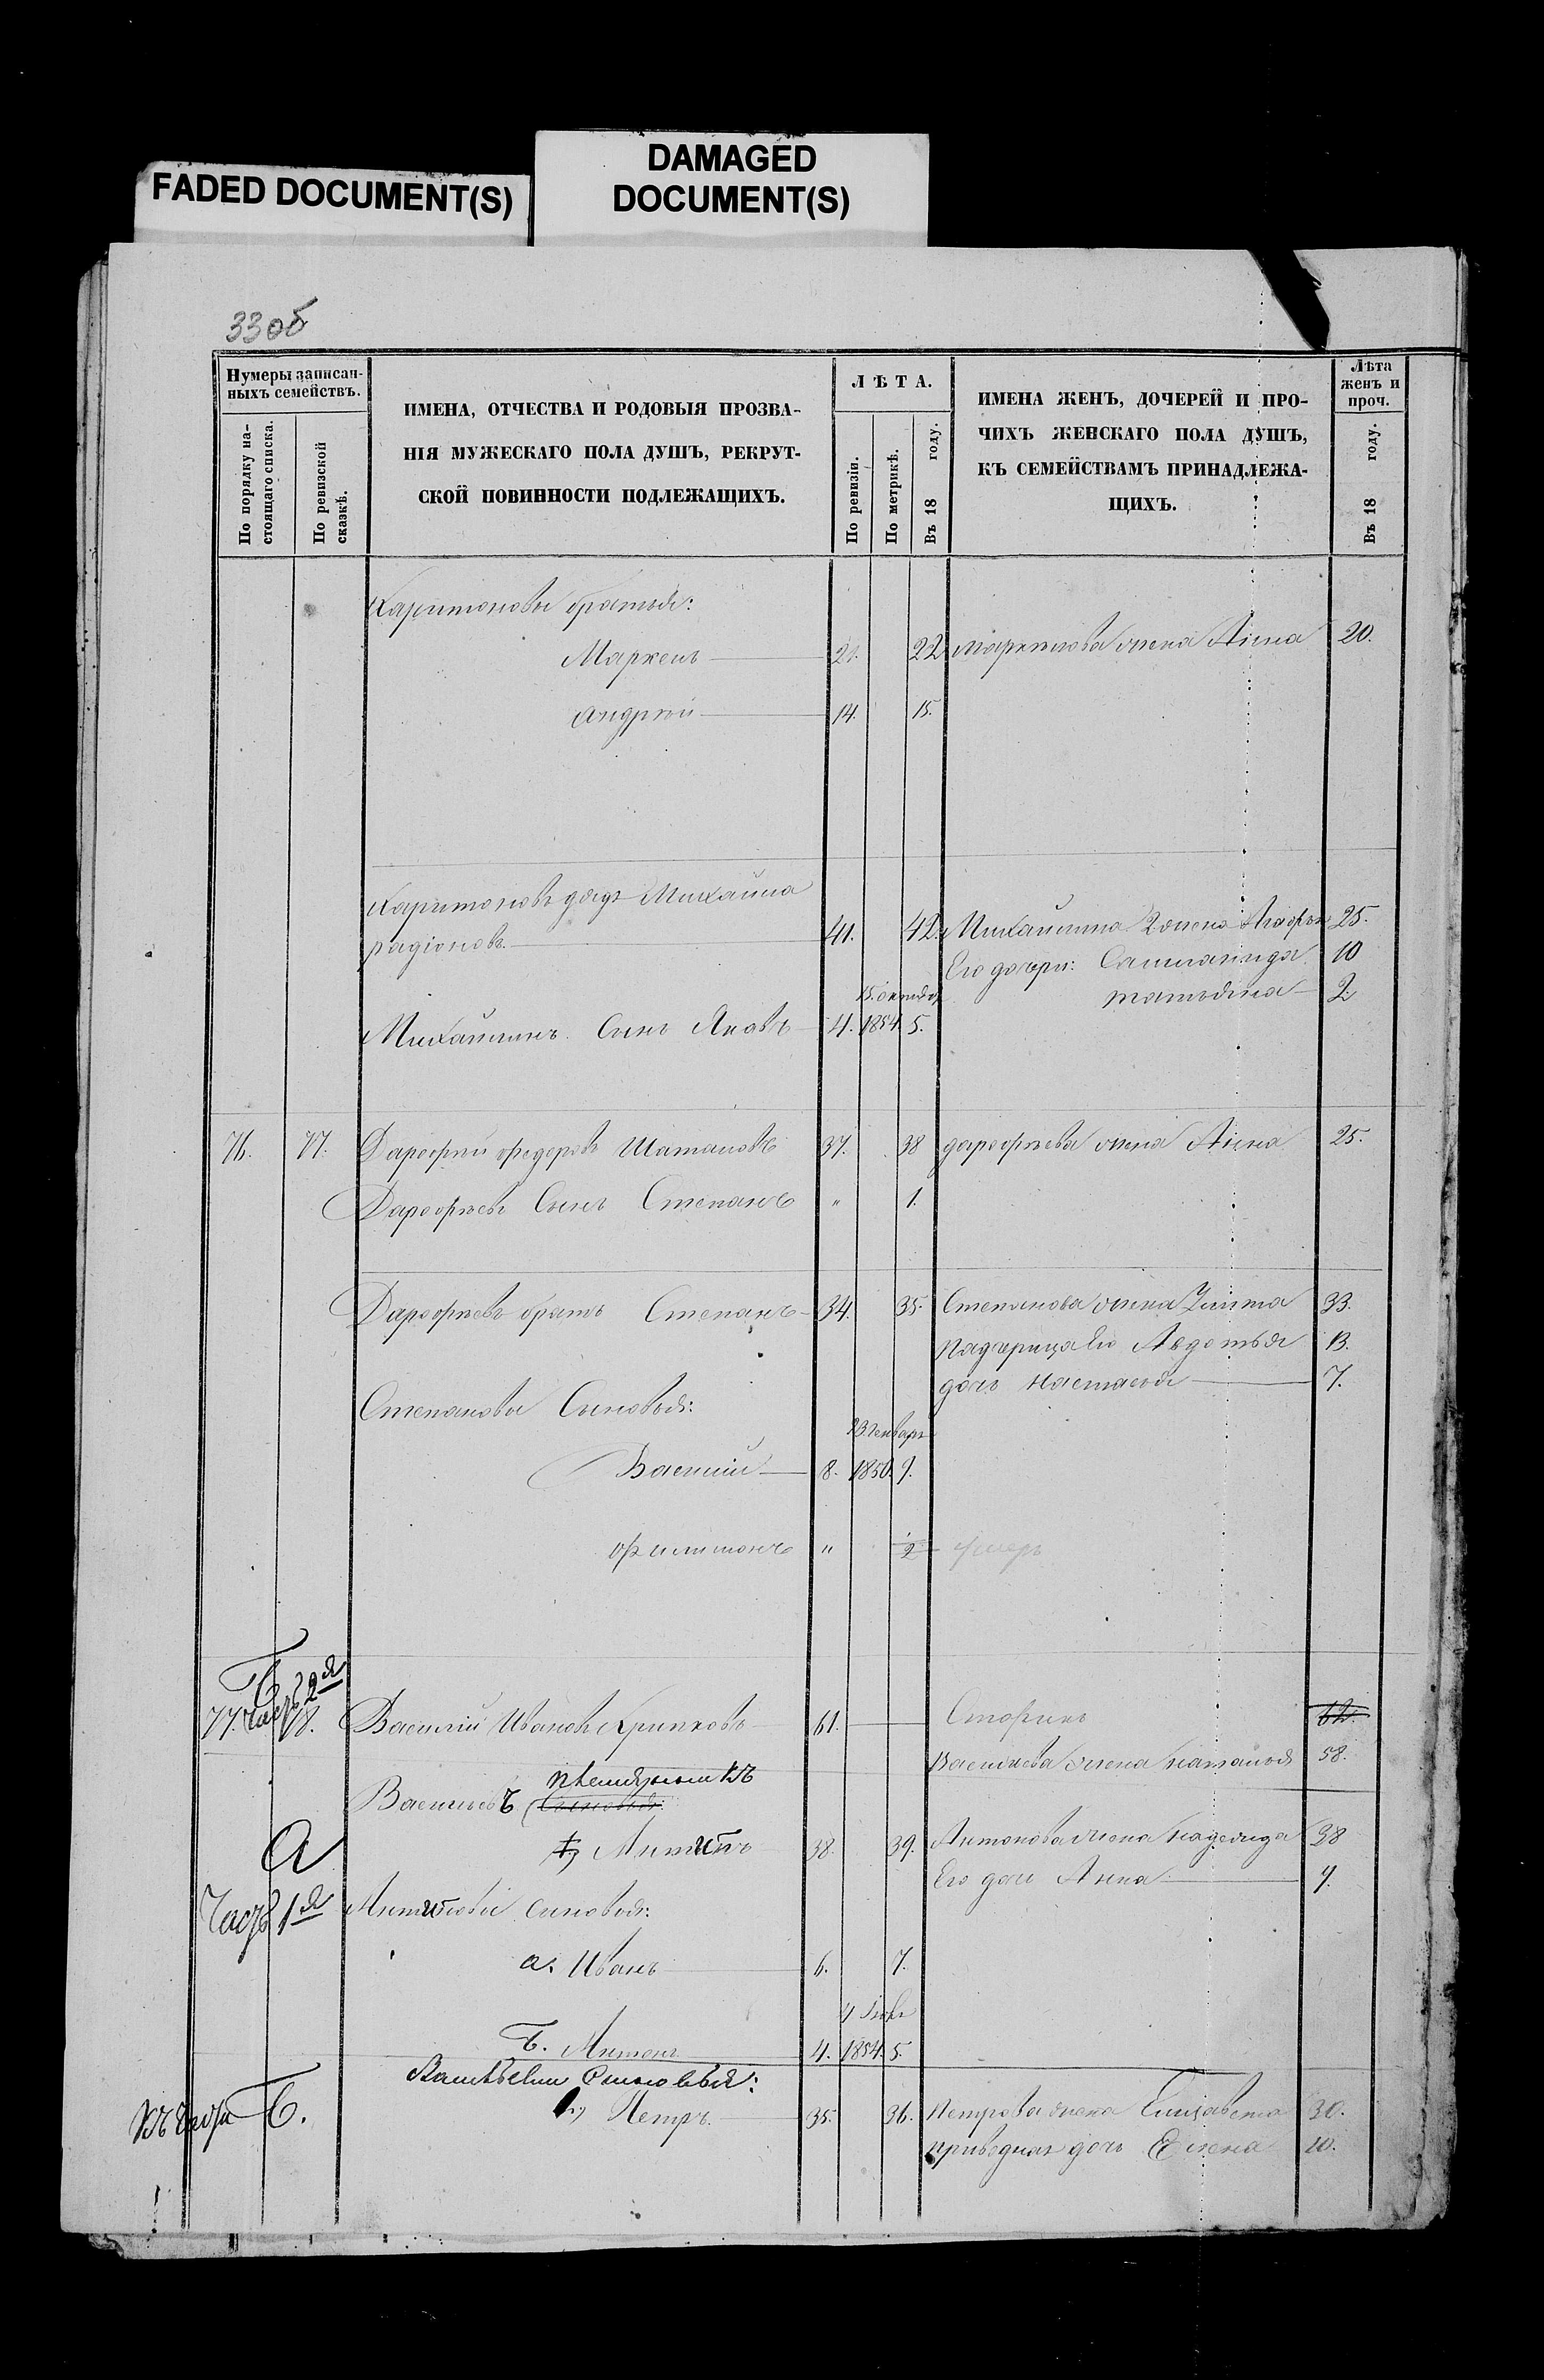 FADED DOCUMENT(S)
DAMAGED
DOCUMENT(S)
33об
Нумеры записан-
ныхъ семействъ.
По порядку на-
стоящаго списка.
По ревизской
сказкѣ.
ИМЕНА, ОТЧЕСТВА И РОДОВЫЯ ПРОЗВА-
НІЯ МУЖЕСКАГО ПОЛА ДУШЪ, РЕКРУТ-
СКОЙ ПОВИННОСТИ ПОДЛЕЖАЩИХЪ.
ЛѢТА.
По ревизіи.
По метрикѣ.
Въ 18 году.
ИМЕНА ЖЕНЪ, ДОЧЕРЕЙ И ПРО-
ЧИХЪ ЖЕНСКАГО ПОЛА ДУШЪ,
КЪ СЕМЕЙСТВАМЪ ПРИНАДЛЕЖА-
ЩИХЪ.
Лѣта
женъ и
проч.
Въ 18 году.
Харитоновы братья:
Маркелъ 21. 22 Маркелова жена Анна 20.
Андрей 14. 15.
Харитоновъ дядя Михайла
радіоновъ. 41. 42. Михайлина 2 жена 25.
Его дочери: 10
татьяна 2.
15. октября
Михайлинъ Сынъ Яковъ 4. 1854 5.
76. 77. Дарофей федоровъ Шаталовъ 37. 38 дарофѣева жена Анна 25.
Дарофѣевъ Сынъ Степанъ " 1.
Дарофѣевъ братъ Степанъ 34. 35. Степанова жена 33.
Падчерица Его Авдотья 13.
дочь настасья 7.
Степановы Сыновья:
23. генваря
Василій 8. 1850. 9.
филимонъ " 2 умеръ
Б
часть 2я
77. 78. Василій Ивановъ 61. 62.
Васильева жена наталья 58.
Васильевъ
Сыновья:
Антонъ 38. 39. Антонова жена надежда 38
Его дочь Анна 9.
а
Часть 1я
Антоновы сыновья:
а. Иванъ 6. 7.
Б. Антонъ 4. 1854. 5.
Васильевы Сыновья:
Къ части Б.
Петръ 35. 36. Петрова жена Елизавета 30.
приводная дочь Елена 10.